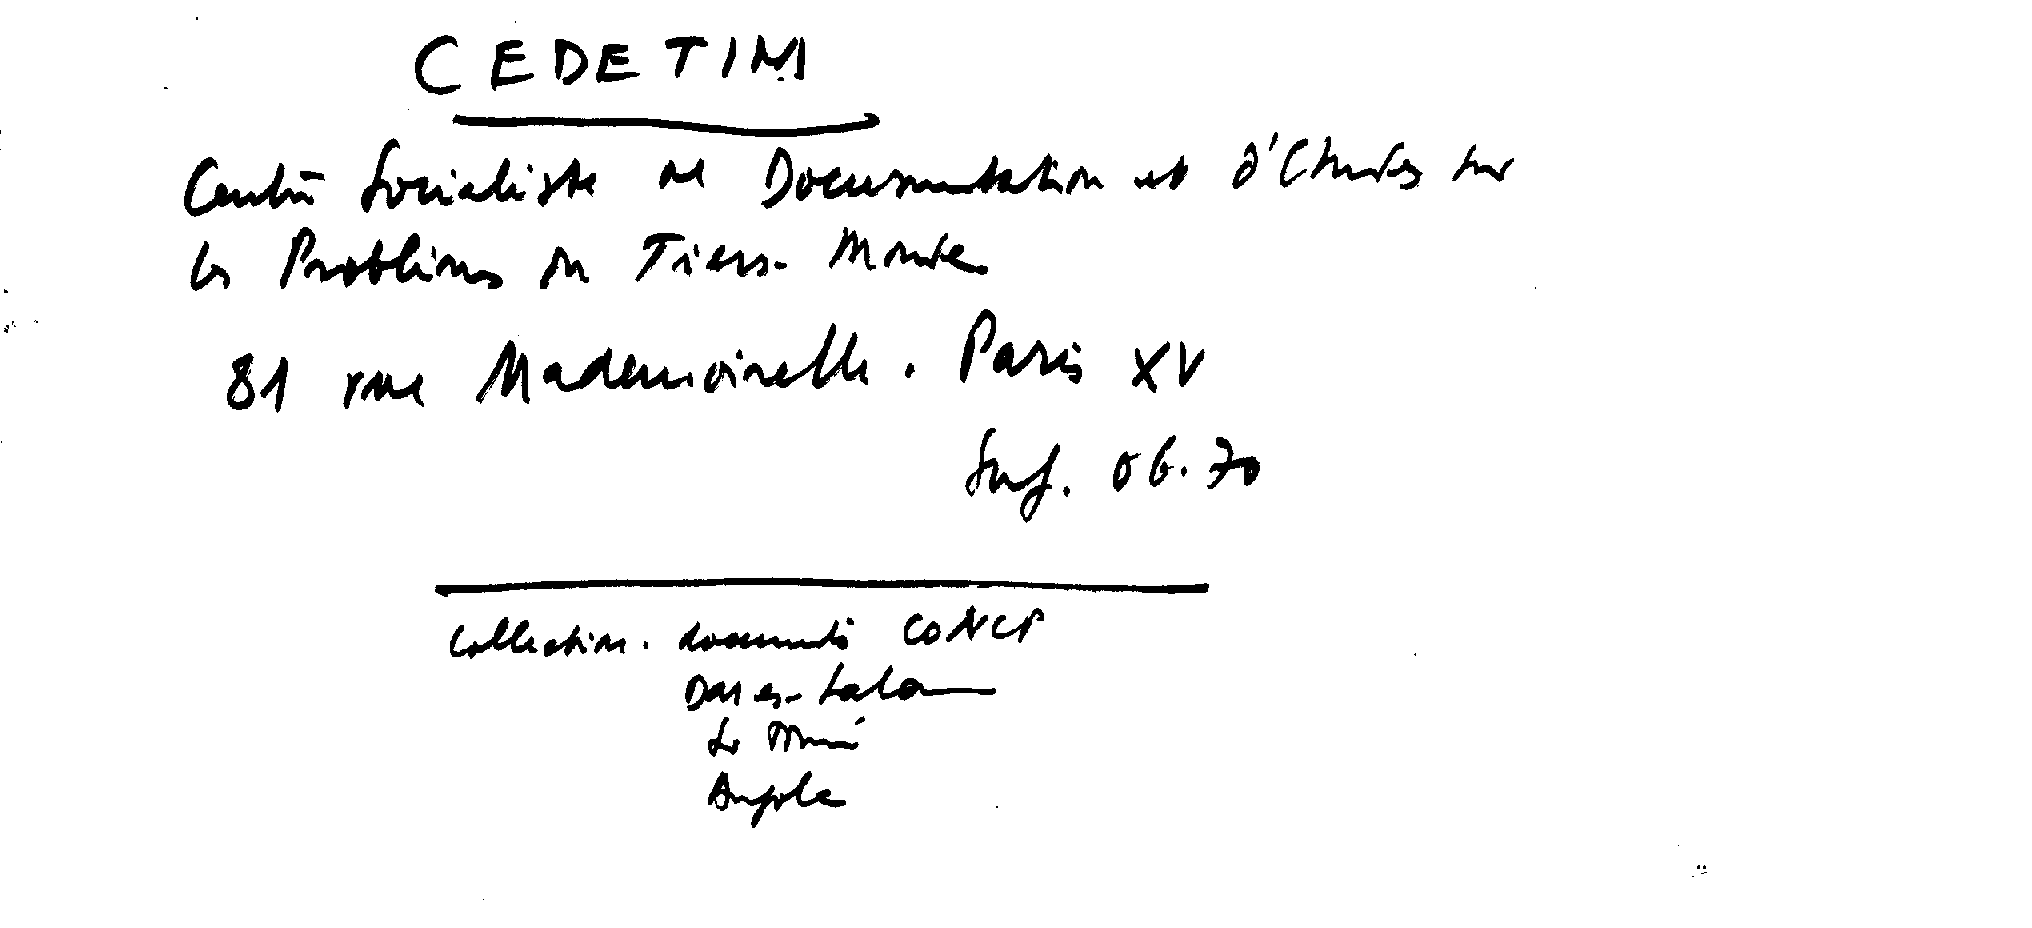 CEDETIM
Centre Socialiste de Documentation et d'Etudes sur
les Problèmes du Tiers-Monde
81 rue Mademoiselle. Paris XV
Suf. 06.70
Collection. documents CONCP
Dar es-Salam
Angola